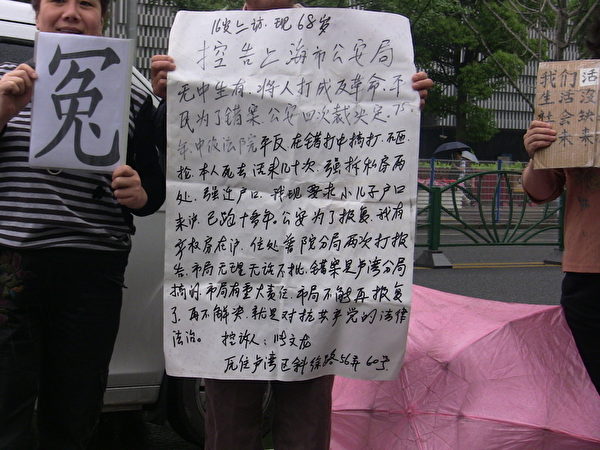 冤
16岁上访.现68岁
控告上海市公安局
无中生有.将人打成反革命.不
民为了错案公安四次裁决定.75
年.中级法院平反.在错打中搞打.不
抢.本人死去活来几十次.强拆私房两
处.强迁户口.我现要求小儿子户口
来沪.已跑十多年.公安为了报复.我有
产权房在沪.住处普陀分局两次打报
告.市局无理无话不批.错案是卢湾分局
搞的.市局有重大责任.市局不能再报复
了.再不解决.就是对抗共产党的法律
法治。 控诉人:
居住卢湾区斜徐路56弄60号
我们活
生活没
社会缺
未来